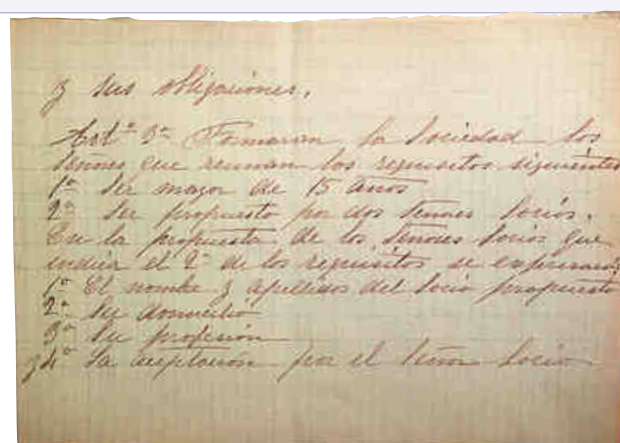 y sus obligaciones.
Artº 3º Formaran la Sociedad los
Señores que reunan los requisitos siguientes
1º Ser mayor de 15 años
2º Ser propuesto por dos Señores Socios.
En la propuesta de los Señores Socios que
indica el 2º de los requisitos se expresará:
1º El nombre y apellidos del Socio propuesto
2º Su domicilio
3º Su profesión
y 4º La aceptación por el Señor Socio